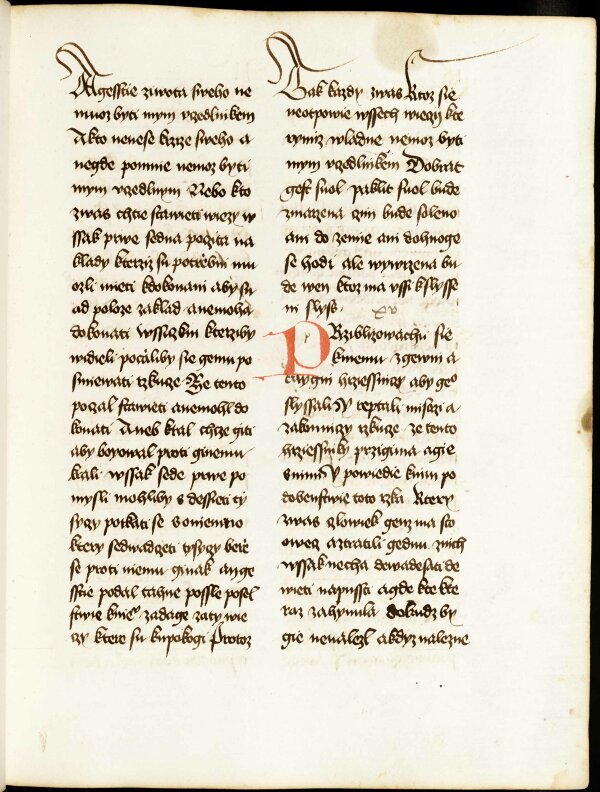 Agesstie ziwota sweho ne
muoz byti mym vzedlnikem
A kto nenese krzize sweho a
negde pomnie nemoz byti
mym vzedlnym Nebo kto
zwas chtie stawieti wiezy w
ssak prwe sedna poczita na
klady kterziz su potrebni mu
ozli mieti kdokonani aby su
ad poloze zaklad a nemoha
dokonati wssiczkni kterziby
widieli poczaliby sie gemu po
smiewati rzkuze Ze tento
poczal stawieti a nemohl do
konati Aneb kral chtze giti
aby boyowal proti ginemu
krali wssak sede prwe po
mysli mohlliby s dessieti ty
syczy potkati se s oniemzto
ktery sedwadczeti tysyczy bere
se proti niemu ginak an ge
sstie podal tahne possle posel
stwie knie zadage zaty wie
czy ktere su kupokogi Protoz
Tak kazdy zwas Ktoz sie
neotpowie wssech wieczij kte
rymiz wladne nemoz byti
mym vzedlnikem Dobrat
gest suol paklit suol bude
zmarzena czim bude soleno
ani do zemie ani dohnoge
se hodi ale wywrzena bu
de wen ktoz ma vssi kslysse
ni slyss
xv
Przibliziowachu sie
kniemu zgewni a
taygni hrziessniczy aby geo
slyssali y reptali mistrzi a
zakonniczy rzkuze ze tento
hrziessniky przigima a gie
s nimi y powiedie knim po
dobenstwie toto rzka Ktery
zwas czlowiek genz ma sto
owecz a ztratili gednu znich
wssak necha dewadesati de
wieti napussti a gde kte kte
raz zahynula dokudz by
gie nenalezl a kdyz nalezne